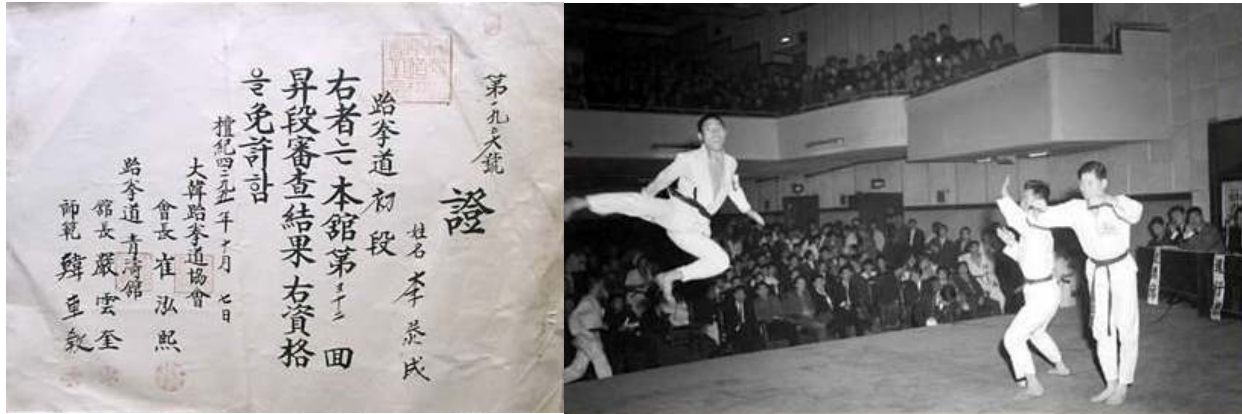 第一九 號
證
姓名 李 成
跆拳道 初段
右者는 本舘第三十二回
昇段審查結果 右資格
을 免許함
檀紀四二九五年 十月 七日
大韓跆拳道協會
會長 崔泓熙
跆拳道 靑濤舘
舘長 嚴雲奎
師範 韓車敎